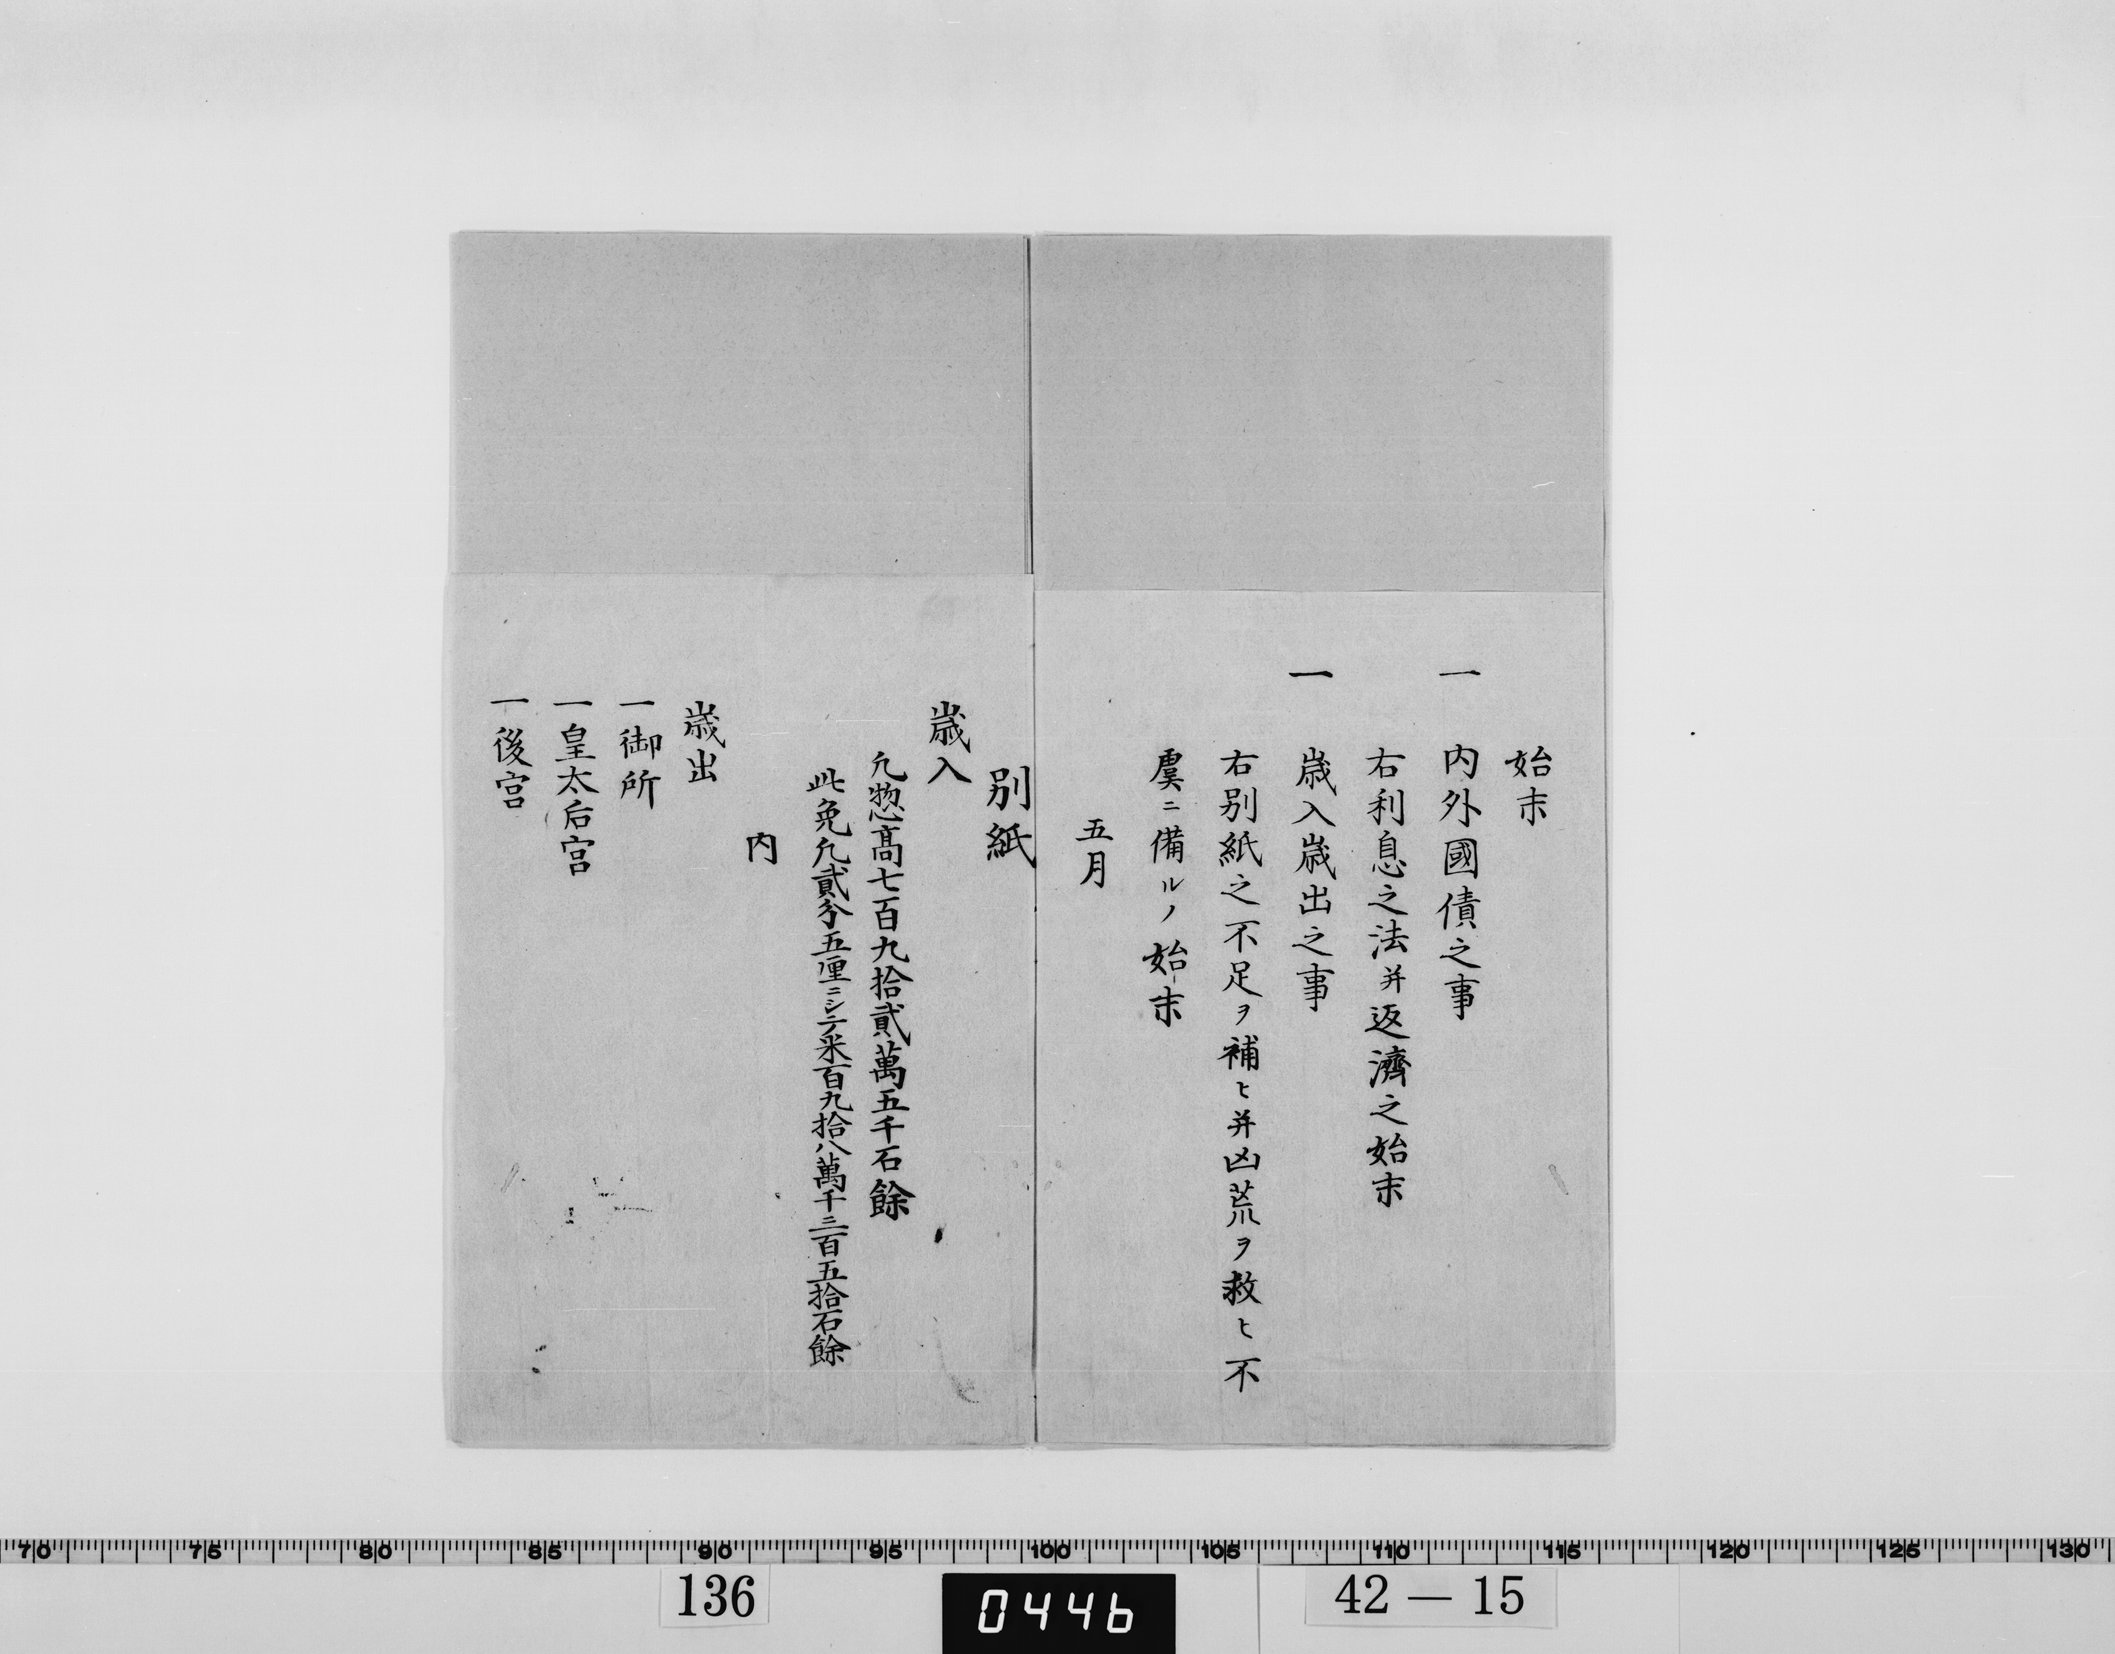 始末
一 内外國債之事
右利息之法并返濟之始末
一 歳入歳出之事
右別紙之不足ヲ補ヒ并凶荒ヲ救ヒ不
虞ニ備ルノ始末
五月
別紙
歳入
凢惣髙七百九拾貳萬五千石餘
此免凢貳分五厘ニシテ米百九拾八萬千三百五拾石餘
内
歳出
一御所
一皇太后宮
一後宮
70 75 80 85 90 95 100 105 110 115 120 125 130
136
0446
42－15